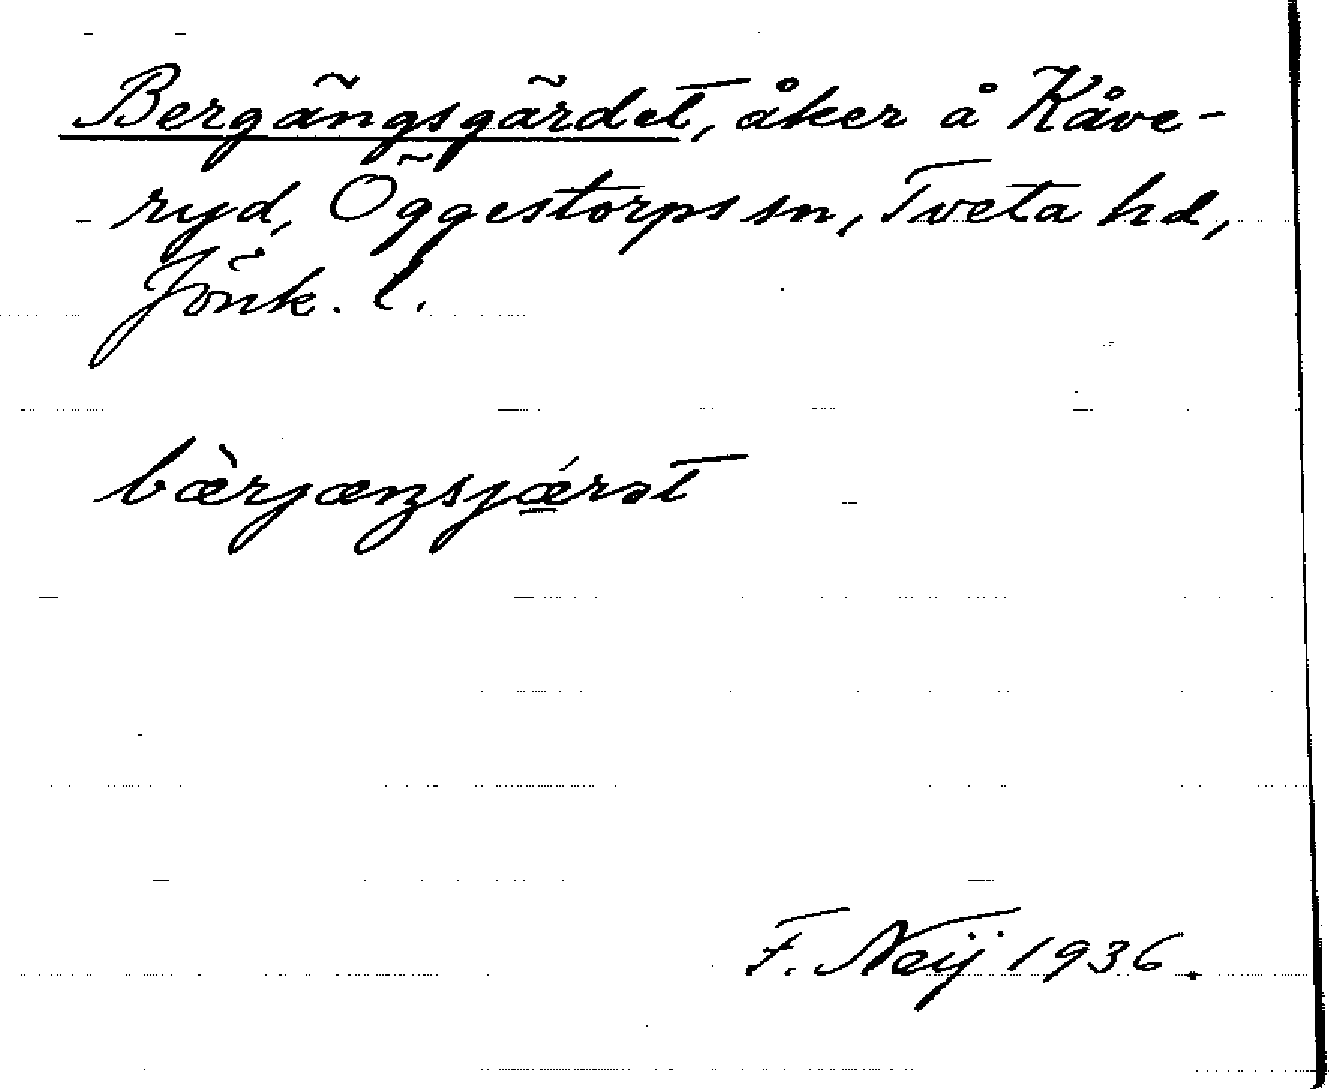 Bergängsgärdet, åker å Kåve-
ryd, Öggestorps sn, Tveta hd,
Jönk. l.
bæ̀rjæŋsjǽ̲rət
F. Neij 1936.